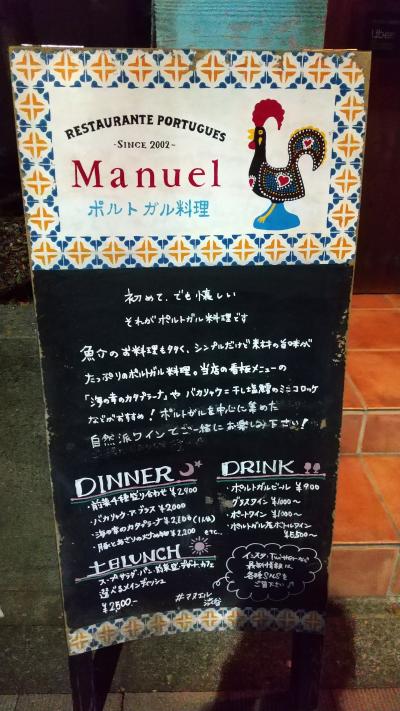 RESTAURANTE PORTUGUES
-SINCE 2002-
Manuel
ポルトガル料理
初めて、でも懐しい
それがポルトガル料理です
魚介のお料理も多く、シンプルだけど素材の旨味が
たっぷりのポルトガル料理。当店の看板メニューの
「海の幸のカタプラーナ」や バカリャウ=干し塩鱈のミニコロッケ
などがおすすめ! ポルトガルを中心に集めた
自然派ワインでご一緒にお楽しみ下さい!
DINNER
・前菜4種盛り合わせ ¥2,400
・バカリャウ・ア・ブラス ¥2,000
・海の幸のカタプラーナ (1人前)
・豚とあさりの ¥2,200 etc...
DRINK
・ポルトガルビール ¥900
・グラスワイン ¥1000〜
・ポートワイン ¥1000〜
・ポルトガル産ボトルワイン
¥5500〜
土日LUNCH
スープ・サラダ・パン・前菜・デザート・カフェ
選べるメインディッシュ
¥2500-
#マヌエル
渋谷
インスタ・Twitterなど
最新情報は
各種SNSを
ご覧下さい
Uber